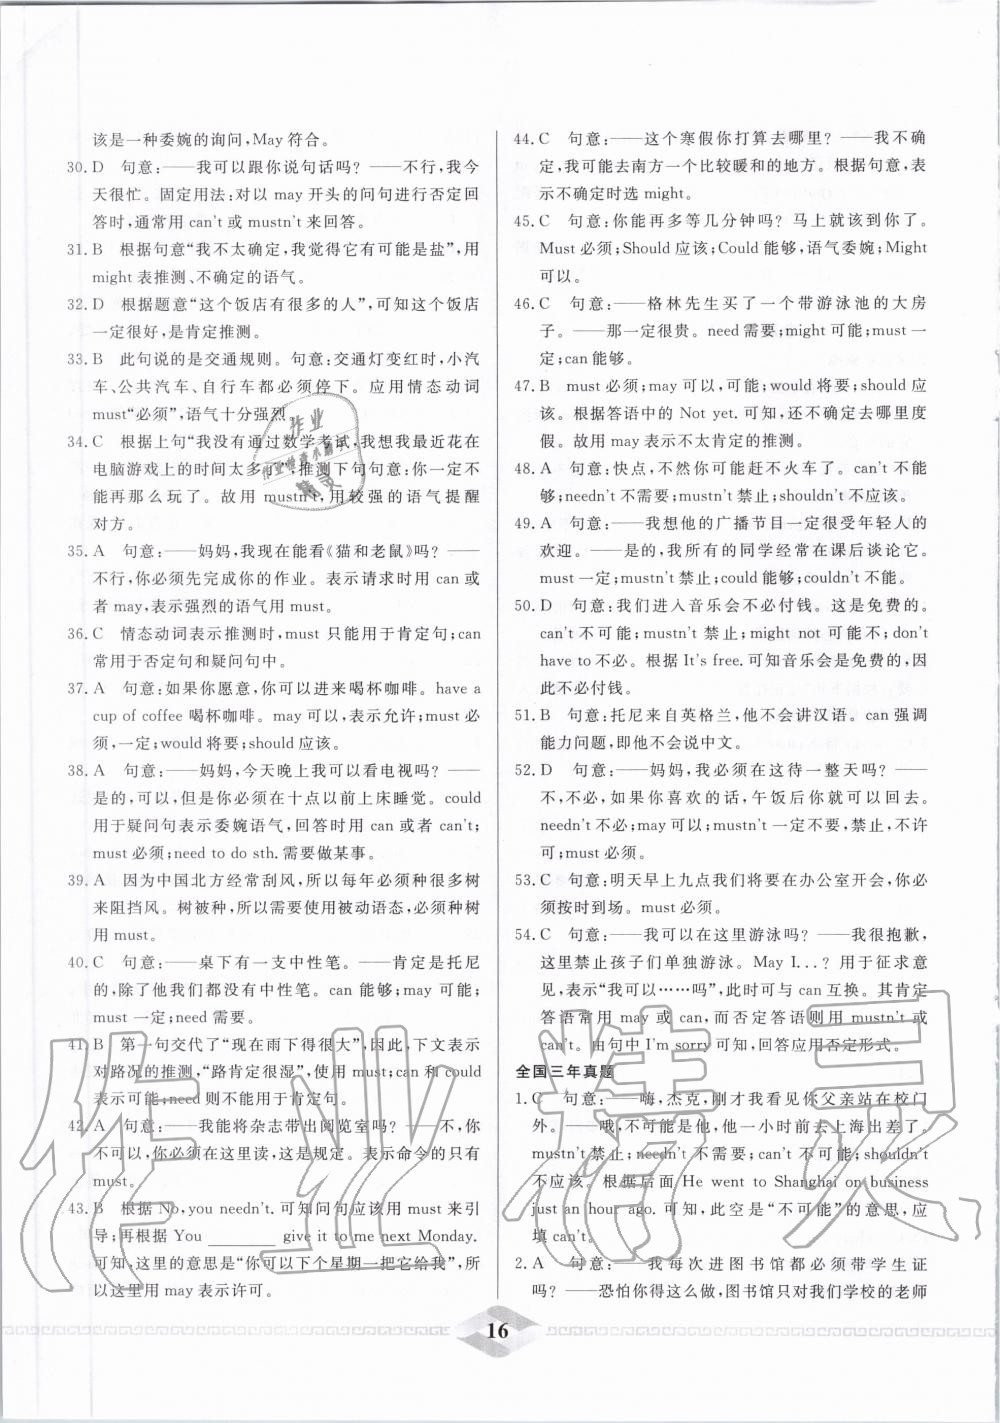 该是一种委婉的询问,May 符合。
30. D 句意:——我可以跟你说句话吗? ——不行,我今
天很忙。固定用法:对以 may 开头的问句进行否定回
答时,通常用 can't 或 mustn't 来回答。
31. B 根据句意“我不太确定,我觉得它有可能是盐”,用
might 表推测、不确定的语气。
32. D 根据题意“这个饭店有很多的人”,可知这个饭店
一定很好,是肯定推测。
33. B 此句说的是交通规则。句意:交通灯变红时,小汽
车、公共汽车、自行车都必须停下。应用情态动词
must“必须”,语气十分强烈。
34. C 根据上句“我没有通过数学考试,我想我最近花在
电脑游戏上的时间太多”,推测下句句意:你一定不
能再那么玩了。故用 mustn't,用较强的语气提醒
对方。
35. A 句意:——妈妈,我现在能看《猫和老鼠》吗? ——
不行,你必须先完成你的作业。表示请求时用 can 或
者 may,表示强烈的语气用 must。
36. C 情态动词表示推测时,must 只能用于肯定句;can
常用于否定句和疑问句中。
37. A 句意:如果你愿意,你可以进来喝杯咖啡。have a
cup of coffee 喝杯咖啡。may 可以,表示允许;must 必
须,一定;would 将要;should 应该。
38. A 句意:——妈妈,今天晚上我可以看电视吗? ——
是的,可以,但是你必须在十点以前上床睡觉。could
用于疑问句表示委婉语气,回答时用 can 或者 can't;
must 必须;need to do sth. 需要做某事。
39. A 因为中国北方经常刮风,所以每年必须种很多树
来阻挡风。树被种,所以需要使用被动语态,必须种树
用 must。
40. C 句意:——桌下有一支中性笔。——肯定是托尼
的,除了他我们都没有中性笔。can 能够;may 可能;
must 一定;need 需要。
41. B 第一句交代了“现在雨下得很大”,因此,下文表示
对路况的推测,“路肯定很湿”,用 must;can 和 could
表示可能;need 则不能用于肯定句中。
42. A 句意:——我能将杂志带出阅览室吗? ——不,你
不可以,你必须在这里读,这是规定。表示命令的只有
must。
43. B 根据 No,you needn't. 可知问句应该用 must 来引
导;再根据 You ________ give it to me next Monday.
可知,这里的意思是“你可以下个星期一把它给我”,所
以这里用 may 表示许可。
44. C 句意:——这个寒假你打算去哪里? ——我不确
定,我可能去南方一个比较暖和的地方。根据句意,表
示不确定时选 might。
45. C 句意:你能再多等几分钟吗? 马上就该到你了。
Must 必须;Should 应该;Could 能够,语气委婉;Might
可以。
46. C 句意:——格林先生买了一个带游泳池的大房
子。——那一定很贵。need 需要;might 可能;must 一
定;can 能够。
47. B must 必须;may 可以,可能;would 将要;should 应
该。根据答语中的 Not yet. 可知,还不确定去哪里度
假。故用 may 表示不太肯定的可能。
48. A 句意:快点,不然你可能赶不上火车了。can't 不能
够;needn't 不需要;mustn't 禁止;shouldn't 不应该。
49. A 句意:——我想他的广播节目一定很受年轻人的
欢迎。——我所有的同学经常在课后谈论它。
must 一定;mustn't 禁止;could 能够;couldn't 不能。
50. D 句意:我们进入音乐会不必付钱。这是免费的。
can't 不可能;mustn't 禁止;might not 可能不;don't
have to 不必。根据 It's free. 可知音乐会是免费的,因
此不必付钱。
51. B 句意:托尼来自英格兰,他不会讲汉语。can 强调
能力问题,即他不会说中文。
52. D 句意:——妈妈,我必须在这待一整天吗? ——
不,不必,如果你喜欢的话,午饭后你就可以回去。
needn't 不必;may 可以;mustn't 一定不要,禁止,不许
可;must 必须。
53. C 句意:明天早上九点我们将要在办公室开会,你必
须按时到场。must 必须。
54. C 句意:——我可以在这里游泳吗? ——我很抱歉,
这里禁止孩子们单独游泳。May I...? 用于征求意
见,表示“我可以……吗”,此时可与 can 互换。其肯定
答语常用 may 或 can,而否定答语则用 mustn't 或
can't。由句中 I'm sorry 可知,回答应用否定形式。
全国三年真题
1. C 句意:——嗨,杰克,刚才我看见你父亲站在校门
外。——哦,不可能是他,他一小时前去上海出差了。
mustn't 禁止;needn't 不需要;can't 不可能;shouldn't
不应该。根据后面 He went to Shanghai on business
just an hour ago. 可知,此空是“不可能”的意思,应
填 can't。
2. A 句意:——我每次进图书馆都必须带学生证
吗? ——恐怕你得这么做,图书馆只对我们学校的老师
16
作业精灵